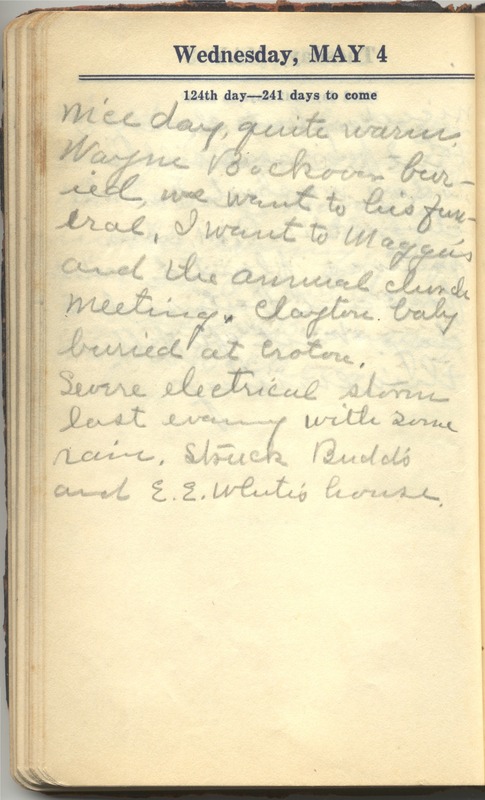 Wednesday, MAY 4
124th day—241 days to come
Nice day, quite warm.
Wayne Bockoven bur-
ied, we want to his fun-
eral, I want to Maggie's
and the annual church
meeting, Clayton baby
buried at Croton.
Severe electrical storm
last evening with some
rain. Struck Budd's
and E.E. White's house.